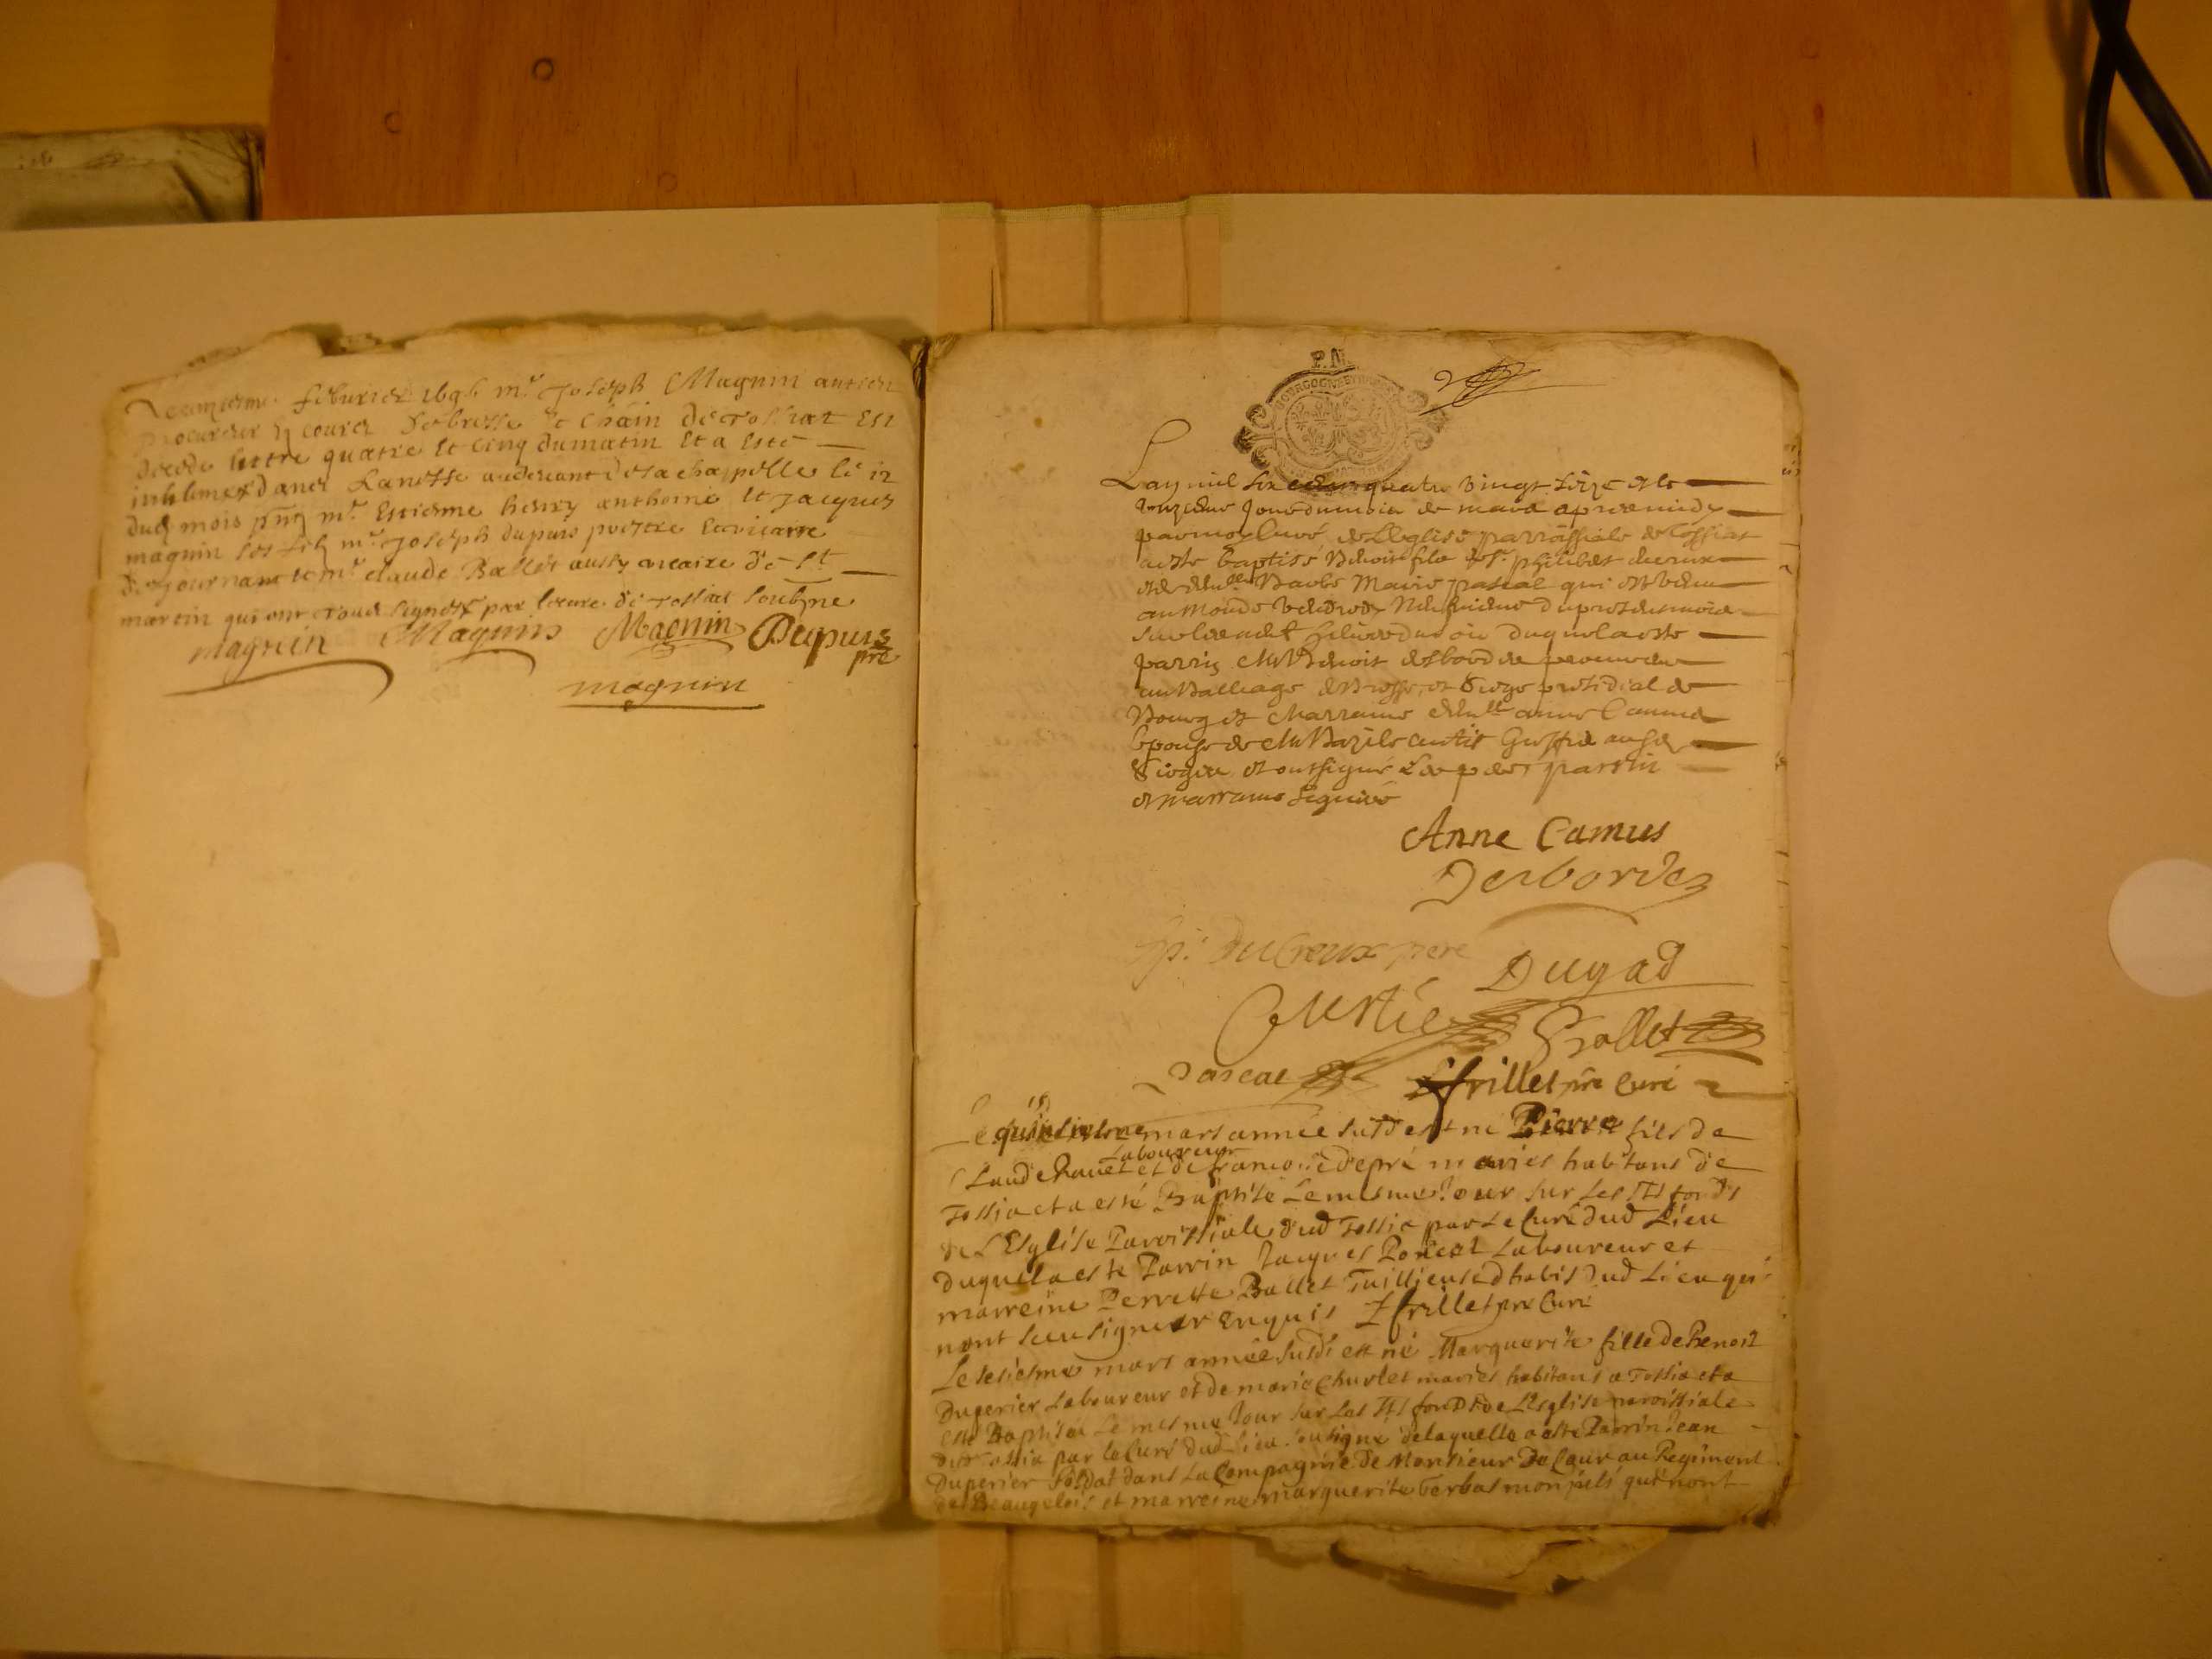 febvrier 1696 mr Joseph Magnin antien
procureur court de bresse et chain de Tossiat est
decede entre quatre et cinq du matin et a esté
inhumé dans la nesse au devant de sa chappelle le 12
dud mois pnts mr Estienne henry anthoine et Jacques
magnin ses filz mr Joseph dupuis prestre et vicaire
de Journans et mr claude Ballet aussy vicaire de St
martin qui ont tous signés par le cure de Tossiat soubsne
magnin Magnin Magnin Dupuis
pre
magnin
P.M.
Lan mil six cents quatre vingt seize et le
jour du mois de mars apres midy
par moy Curé de Leglise parroissiale de Tossiat
a este baptisé Benoit fils de Sr philibert ducreux
et de delle Marie pascal qui est venu
au monde du present mois
duquel a este
parrin Mr Benoit desbordes
au Balliage de Bresse et siege presidial de
Bourg et Marraine delle anne Camus
Epouse de Mr curtil greffie
sieges et ont signé Les pere parrin
et marraine
Anne Camus
Desbordes
p. DuCreux pere
Dugad
Curtil
Ballet
Pascal
frillet pre Curé
15
Le quinsiesme mars année susd est né Pierre fils de
Laboureur
Claude Ravet et de francoise depré mariés habitans de
Tossia et a esté Baptisé Le mesme Jour sur Les Sts fonds
de LEsglise Paroissiale dud Tossia par Le Curé dud Lieu
duquel a este Parrin Jacques Poncet Laboureur et
marreine Pervette Ballet Taillieuse d habis dud Lieu qui
nont sceu signer Enquis frillet pre Curé
Le sesiesme mars année susd est né Marguerite fille de Benoit
Duperier Laboureur et de marie Churlet mariés habitans a Tossia et a
esté Baptisée Le mesme Jour sur Les Sts fonds de L'Esglise paroissiale
dud Tossia par le Curé dud Lieu sousigné de laquelle a este Parrin Jean
Duperier Soldat dans La Compagnie de Monsieur De Cour au Regiment
de Beaugelois et marreine marguerite Gerbas mon pils qui nont